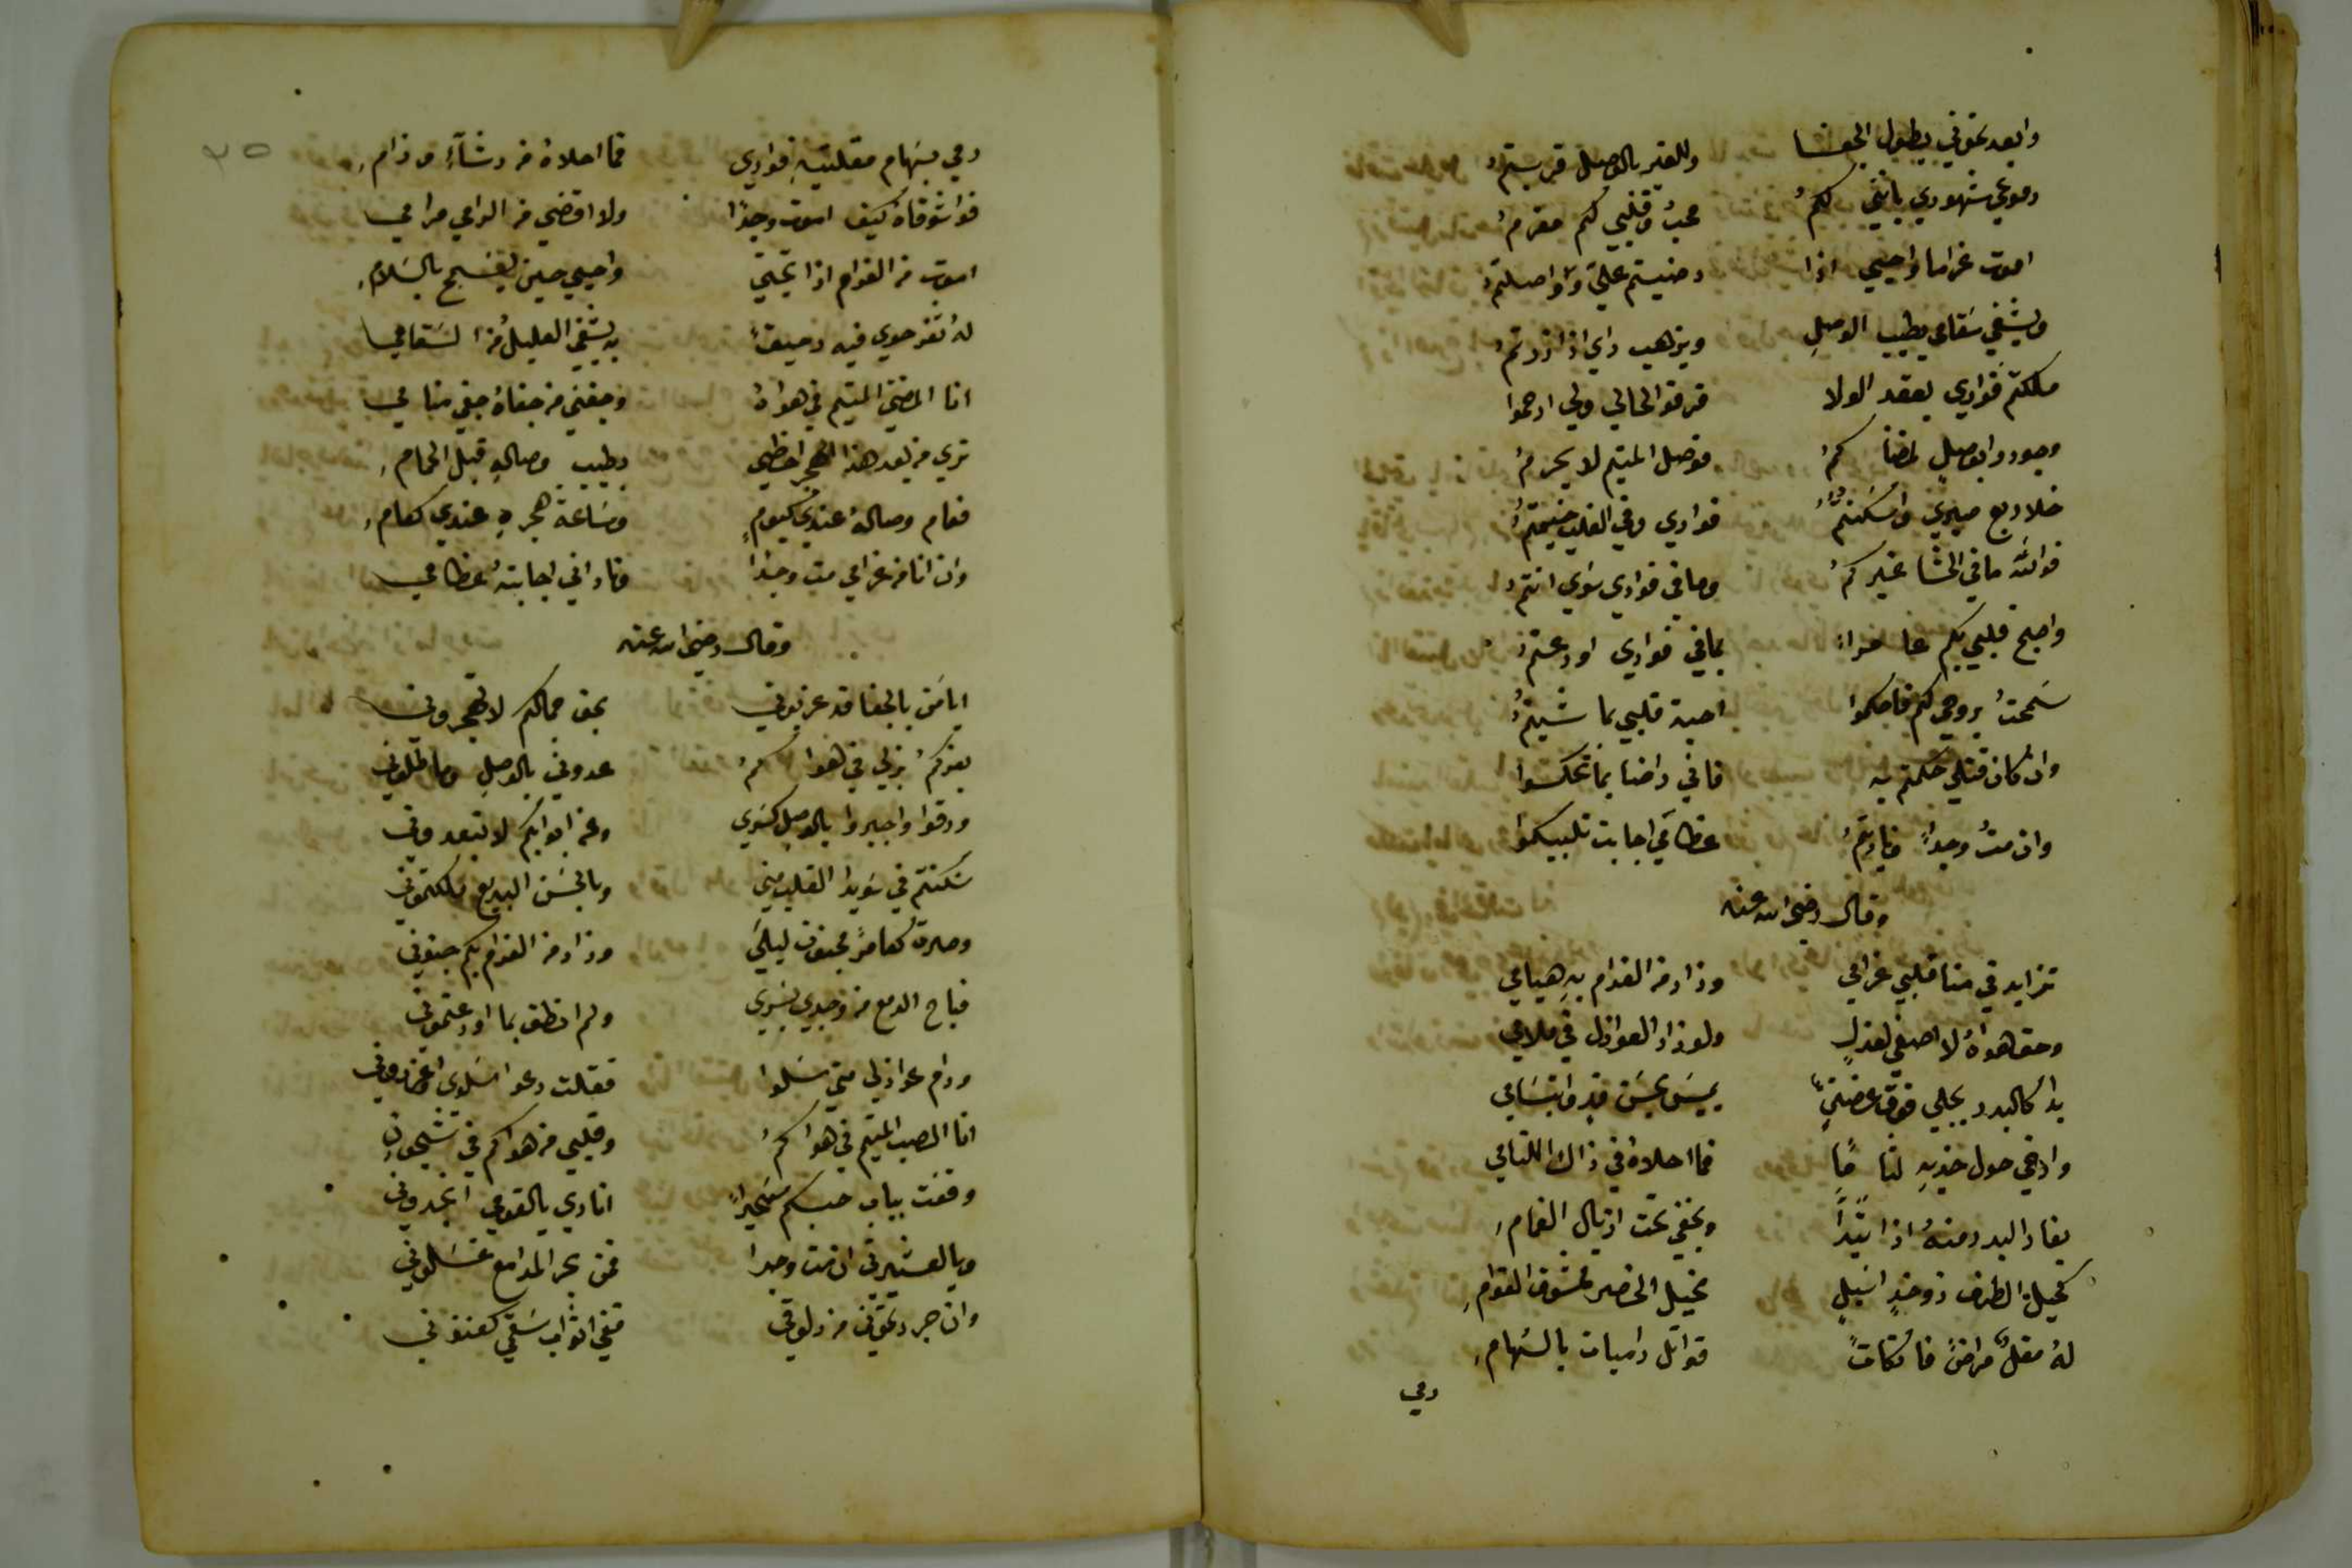 وابعدتموني بطول الجفا وللغير بالوصل قربتم
دموعي شهودي باني لكم محب وقلبي لكم مغرم
اموت غراما واحيي اذا رضيتم علي وواصلتم
ويشفي سقامي بطيب الوصل ويذهب داي اذا زرتم
ملكتم فوادي بعقد الولا فرقوا لحالي ولي ارحموا
وجودوا بوصل لمضناكم فوصل المتيم لا يحرم
خلا ربع صبري واسكنتم فوادي وفي القلب خيمتم
فوالله ما في الحشا غيركم وما في فوادي سوي انتم
واصبح قلبي بكم عامرا بما في فوادي اودعتم
سمحت بروحي لكم فاحكموا احبة قلبي بما شيتم
وان كان قتلي حكمتم به فاني راضا بما تحكموا
وان مت وجدا ناديتم عظامي اجابت تلبيكموا
وقال رضي الله عنه
تزايد في منا قلبي غرامي وزاد من الغرام به هيامي
وحق هواه لا اصغي لعذل ولو زاد العواذل في ملامي
بدا كالبدر يجلي فوق غصن يميس بحسن قد وابتسامي
وارخي حول خديه لثاما فما احلاه في ذاك اللثامي
يغار البدر منه اذا تبدا ويخفي تحت اذيال الغمام
كحيل الطرف ذو خد اسيل نحيل الخصر ممشوق القوام
له مقل مراض فاتكات قواتل راميات بالسهام
رمي
٣٥
رمي بسهام مقلتيه فوادي فما احلاه من رشاء ورام
فواشوقاه كيف اموت وجدا ولا اقضي من الرامي مرامي
اموت من الغرام اذا تجني واحيي حين يفسح بالسلام
له ثغر حوي فيه رحيقا به يشفي العليل من السقامي
انا المضني المتيم في هواه وجفني من جفاه جفي منامي
تري من بعد هذا الهجر احظي بطيب وصاله قبل الحمام
فعام وصاله عندي كيوم وساعة هجره عندي كعام
وان انا من غرامي مت وجدا وناداني اجابته عظامي
وقال رضي الله عنه
ايا من بالجفا قد عذبوني بحق جمالكم لا تهجروني
بعزكم بذلي في هواكم عدوني بالوصل وماطلوني
ورقوا واجبروا بالوصل كسري وعن ابوابكم لا تبعدوني
سكنتم في سويدا القلب مني وبالحسن البديع ملكتموني
وصرت كعامر مجنون ليلي وزاد من الغرام بكم جنوني
فباح الدمع من وجدي بسري ولم انطق بما اودعتموني
ورام عواذلي مني سلوا فقلت دعوا سلوي واعذروني
انا الصب المتيم في هواكم وقلبي من هواكم في شجون
وقفت بباب حبكم سحيرا انادي يالقومي انجدوني
ويالعشيرتي ان مت وجدا فمن بحر المدامع غسلوني
وان جردتموني من دلوقي ففي اثواب سقمي كفنوني